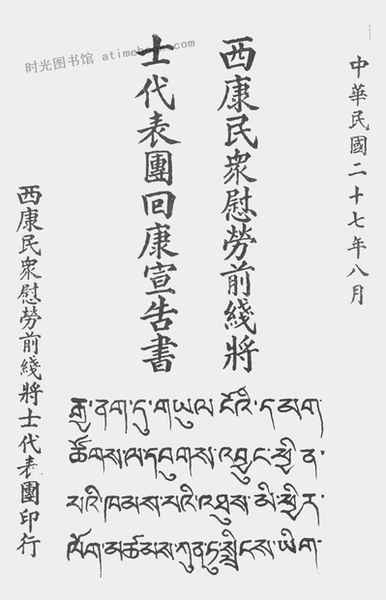 中華民國二十七年八月
西康民眾慰勞前綫將
士代表團回康宣告書
西康民眾慰勞前綫將士代表團印行
རྒྱ་ནག་དུ་གཡུལ་ངོའི་དམག་
ཚོགས་ལ་དབུགས་འབྱུང་སྤྱི་ན་
ཁམས་པའི་འཐུས་མི་ཕྱིར་
ལོག་མཚམས་ཀུན་ཏུ་སྤྲིངས་ཡིག་
时光图书馆